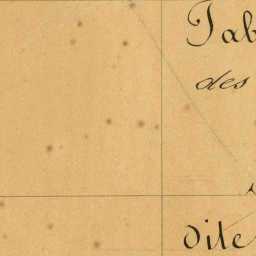 Tab
des
oite